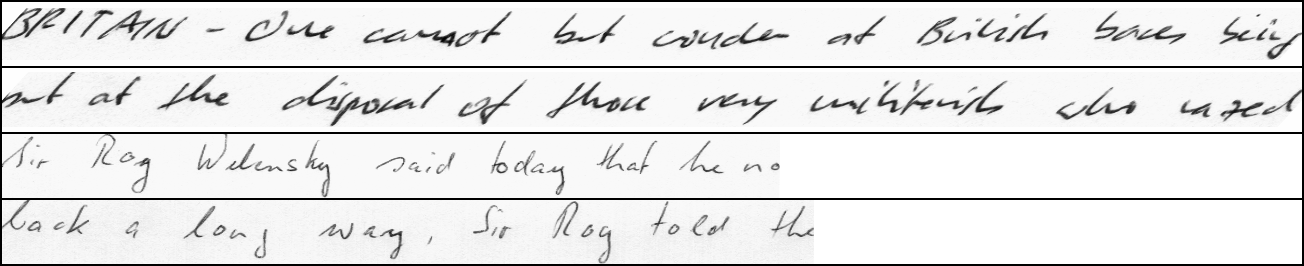 BRITAIN - One cannot but wonder at British bases being
put at the disposal of those very militarists who razed
Sir Roy Welensky said today that he no
back a long way, Sir Roy told the